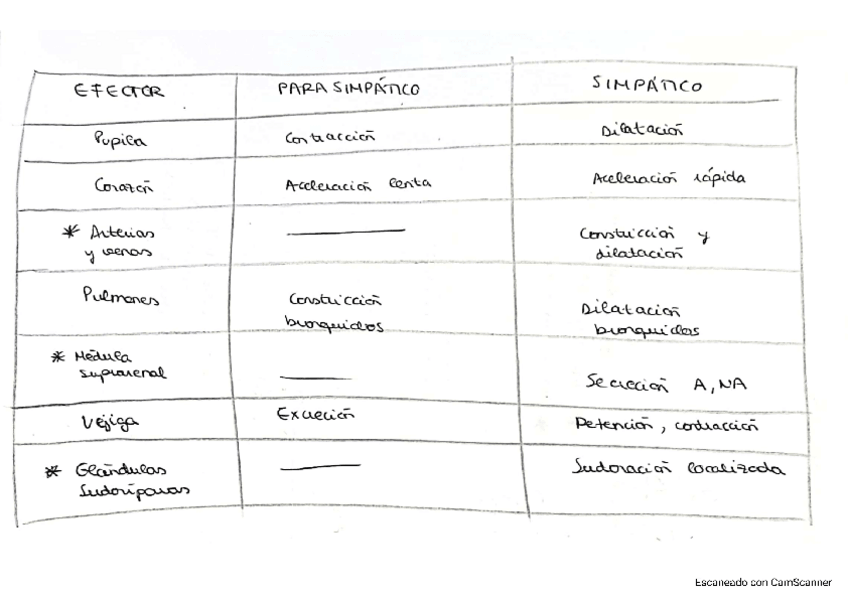 EFECTOR PARASIMPÁTICO SIMPÁTICO
Pupila Contracción Dilatación
Corazón Aceleración lenta Aceleración rápida
* Arterias y venas Constricción y dilatación
Pulmones Constricción bronquiolos Dilatación bronquiolos
* Médula suprarenal Secreción A, NA
Vejiga Excreción Retención, contracción
* Glándulas Sudoríparas Sudoración localizada
Escaneado con CamScanner